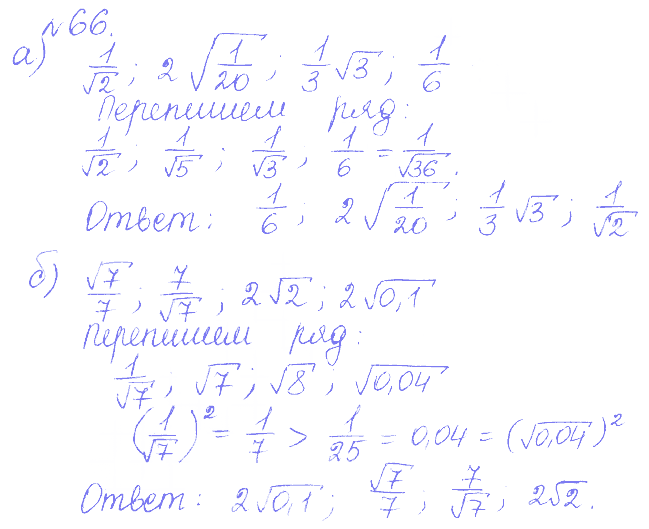 №66.
а) 1/√2; 2√(1/20); 1/3 √3; 1/6
Перепишем ряд:
1/√2; 1/√5; 1/√3; 1/6 = 1/√36.
Ответ: 1/6; 2√(1/20); 1/3 √3; 1/√2
б) √7/7; 7/√7; 2√2; 2√0,1
Перепишем ряд:
1/√7; √7; √8; √0,04
(1/√7)² = 1/7 > 1/25 = 0,04 = (√0,04)²
Ответ: 2√0,1; √7/7; 7/√7; 2√2.